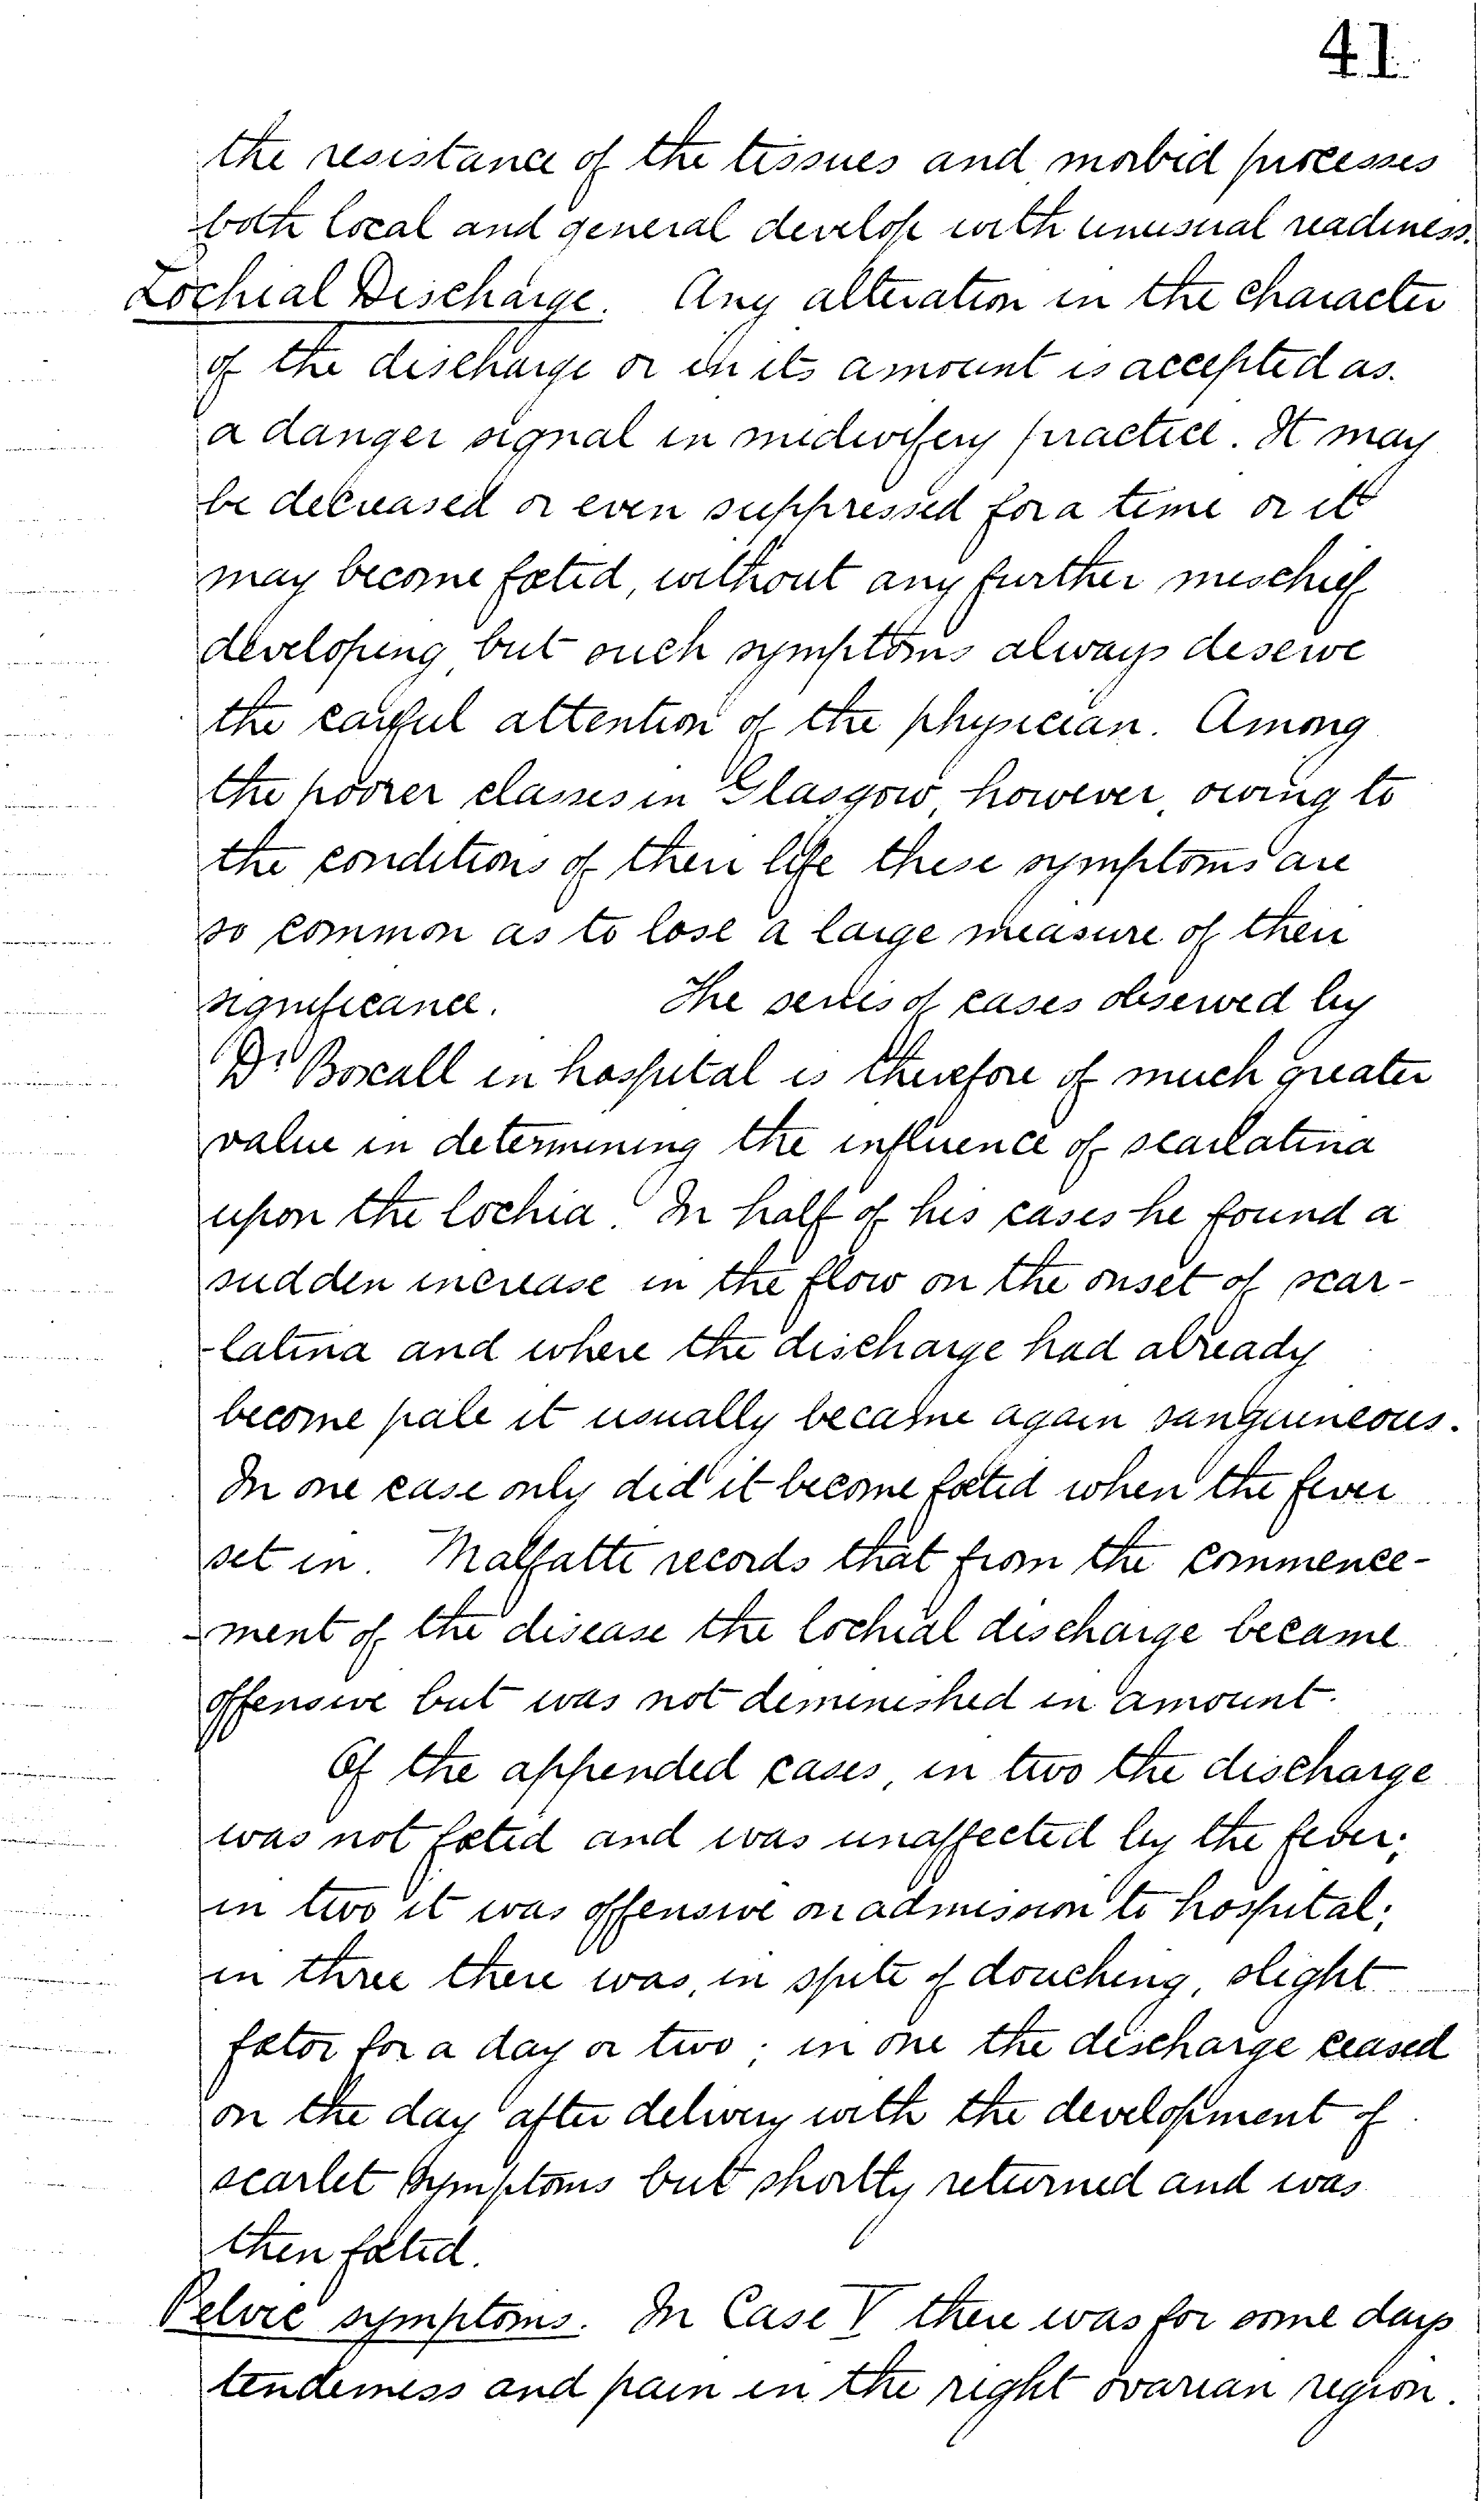 41.
the resistance of the tissues and morbid processes
both local and general develop with unusual readiness.
Lochial Discharge. Any alteration in the character
of the discharge or in its amount is accepted as.
a danger signal in midwifery practice. It may
be decreased or even suppressed for a time or it
may become fœtid, without any further mischief
developing but such symptoms always deserve
the careful attention of the physician. Among
the poorer classes in Glasgow, however, owing to
the conditions of their life these symptoms are
so common as to lose a large measure of their
significance. The series of cases observed by
Dr Boxall in hospital is therefore of much greater
value in determining the influence of scarlatina
upon the lochia. In half of his cases he found a
sudden increase in the flow on the onset of scar-
-latina and where the discharge had already
become pale it usually became again sanguineous.
In one case only did it become fœtid when the fever
set in. Malfatti records that from the commence-
-ment of the disease the lochial discharge became
offensive but was not diminished in amount.
Of the appended cases, in two the discharge
was not fœtid and was unaffected by the fever;
in two it was offensive on admission to hospital;
in three there was, in spite of douching, slight
fœtor for a day or two; in one the discharge ceased
on the day after delivery with the development of
scarlet symptoms but shortly returned and was
then fœtid.
Pelvic symptoms. In Case V there was for some days
tenderness and pain in the right ovarian region.